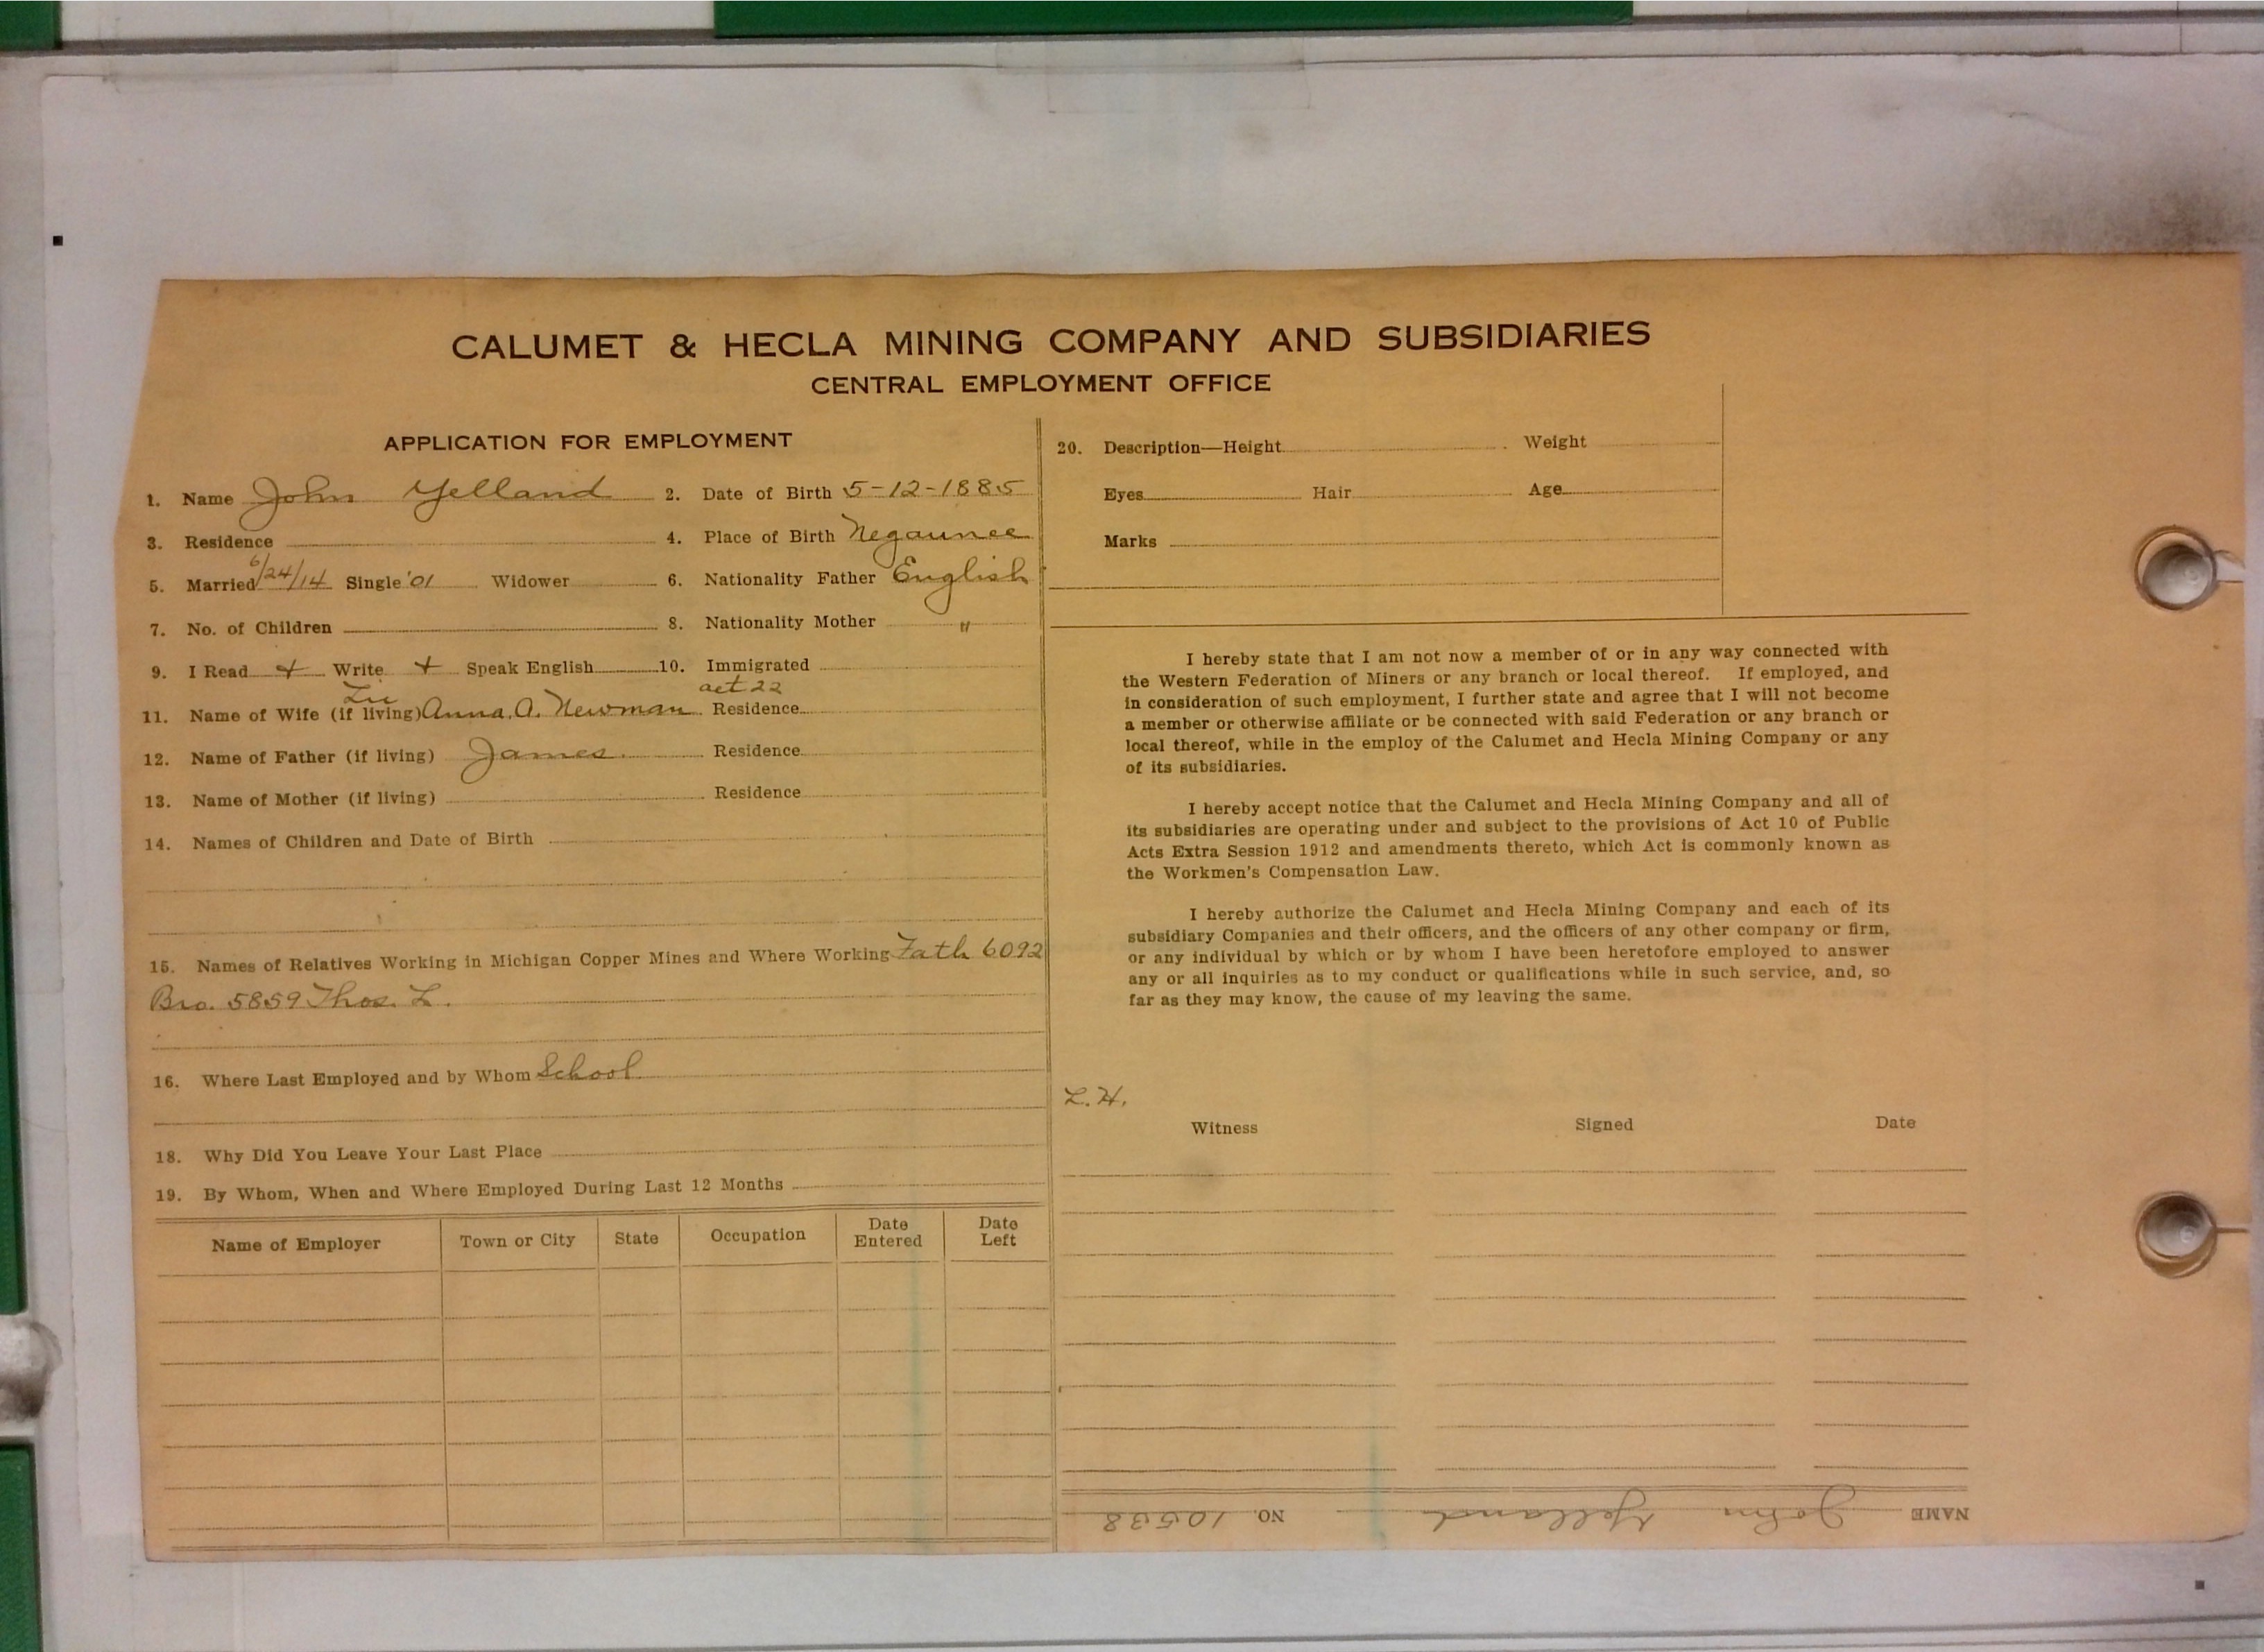 CALUMET & HECLA MINING COMPANY AND SUBSIDIARIES
CENTRAL EMPLOYMENT OFFICE
APPLICATION FOR EMPLOYMENT
1. Name John Yelland 2. Date of Birth 5-12-1885
3. Residence 4. Place of Birth Negaunee
5. Married 6/24/14 Single '01 Widower 6. Nationality Father English
7. No. of Children 8. Nationality Mother "
9. I Read + Write + Speak English 10. Immigrated
aet 22
11. Name of Wife (if living) Anna. A. Newman Residence
12. Name of Father (if living) James. Residence
13. Name of Mother (if living) Residence
14. Names of Children and Date of Birth
15. Names of Relatives Working in Michigan Copper Mines and Where Working Fath 6092
Bro. 5859 Thos. L.
16. Where Last Employed and by Whom School
18. Why Did You Leave Your Last Place
19. By Whom, When and Where Employed During Last 12 Months
Name of Employer Town or City State Occupation Date Entered Date Left
20. Description—Height Weight
Eyes Hair Age
Marks
I hereby state that I am not now a member of or in any way connected with
the Western Federation of Miners or any branch or local thereof. If employed, and
in consideration of such employment, I further state and agree that I will not become
a member or otherwise affiliate or be connected with said Federation or any branch or
local thereof, while in the employ of the Calumet and Hecla Mining Company or any
of its subsidiaries.
I hereby accept notice that the Calumet and Hecla Mining Company and all of
its subsidiaries are operating under and subject to the provisions of Act 10 of Public
Acts Extra Session 1912 and amendments thereto, which Act is commonly known as
the Workmen's Compensation Law.
I hereby authorize the Calumet and Hecla Mining Company and each of its
subsidiary Companies and their officers, and the officers of any other company or firm,
or any individual by which or by whom I have been heretofore employed to answer
any or all inquiries as to my conduct or qualifications while in such service, and, so
far as they may know, the cause of my leaving the same.
L.H.
Witness Signed Date
NAME John Yelland NO. 10538